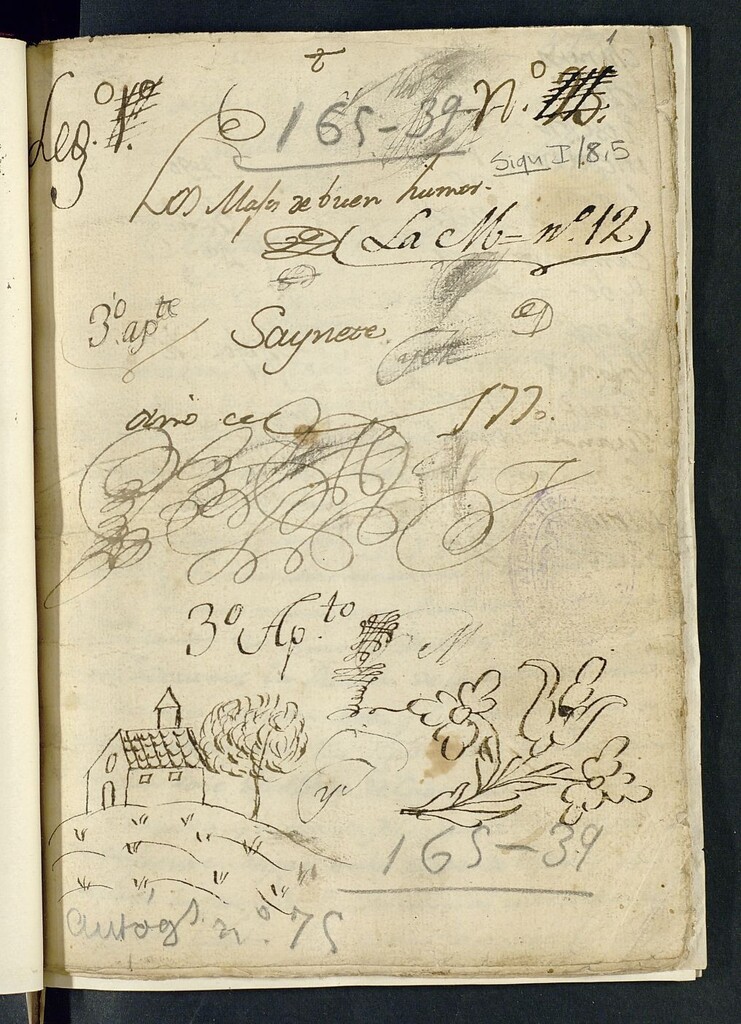 1
Leg.º 1.º 165-39 N.º
Sign I/8,5
Los Majos de buen humor.
La M= nº.12
3º apte
Saynete
año de 1770.
3º Apto
M
165-39
autógs nº. 75